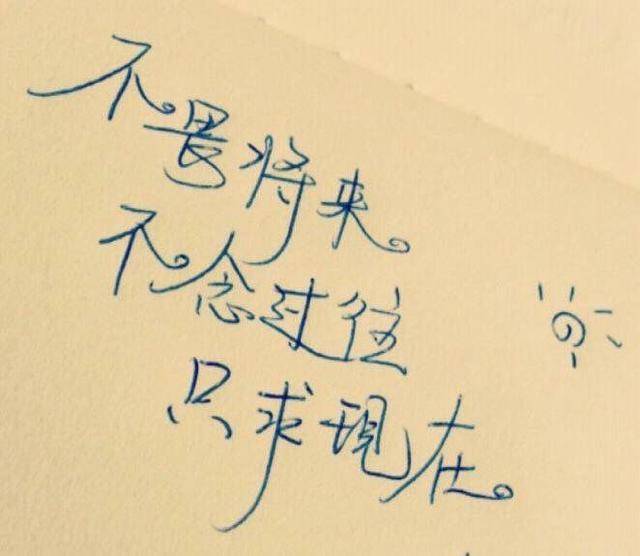 不畏将来
不念过往
只求现在